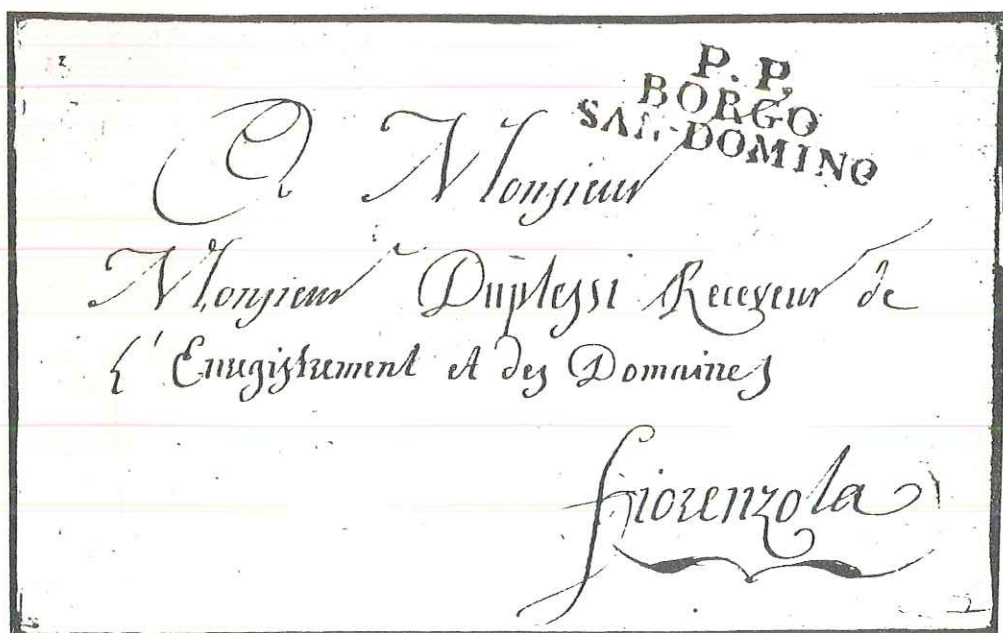 P. P.
BORGO
SAN-DOMINO
A Monsieur
Monsieur Duplessi Receveur de
L'Enregistrement et des Domaines
fiorenzola